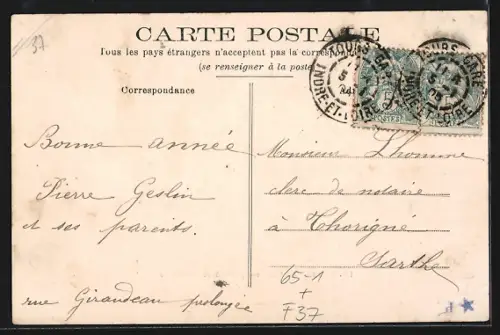 37
CARTE POSTALE
Tous les pays étrangers n'acceptent pas la correspondance
(se renseigner à la poste
Correspondance
TOURS-GARE
INDRE-ET-LOIRE
TOURS-GARE
Bonne année
Pierre Geslin
et ses parents.
rue Girandeau prolongée
Monsieur Lhomme
clerc de notaire
à Thorigné
Sarthe
65-1
+
F37